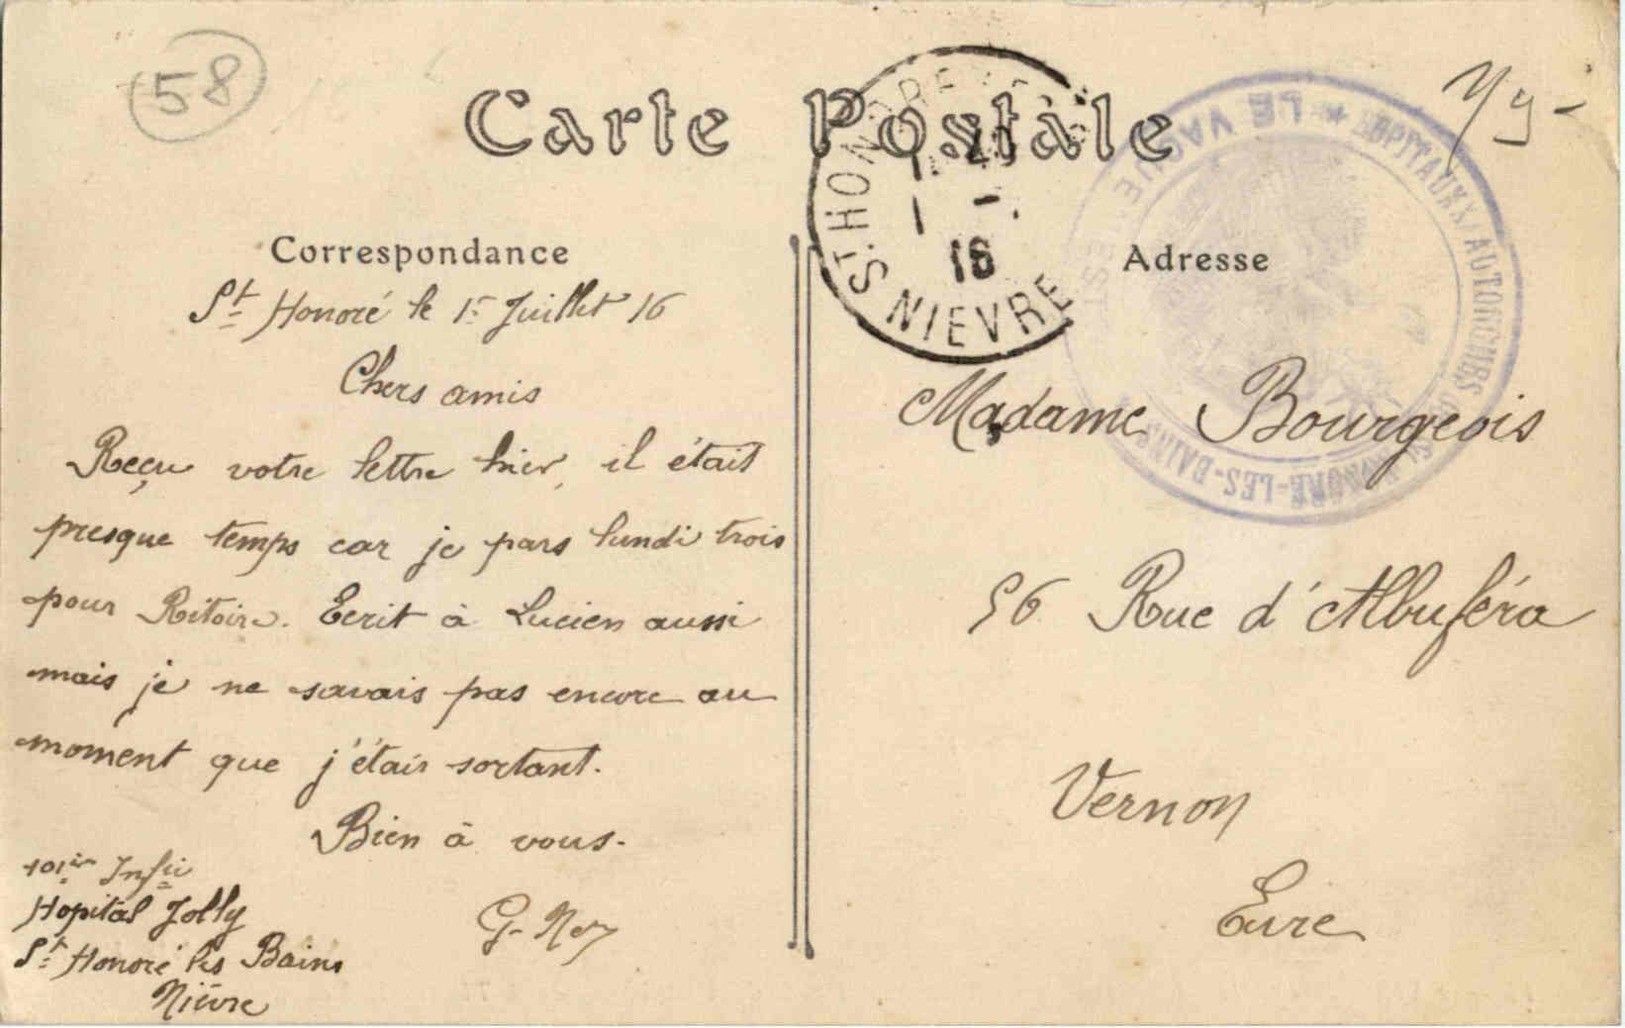 58
Carte Postale
Correspondance
St Honoré le 1r Juillet 16
Chers amis
Reçu votre lettre hier, il était
presque temps car je pars lundi trois
pour Ecrit à Lucien aussi
mais je ne savais pas encore au
moment que j'étais sortant.
Bien à vous.
G. Ney
101ie Infie
Hopital Jolly
St Honoré les Bains
Nièvre
ST HONORE
1 -
16
NIEVRE
HOPITAUX AUTONOMES
LES-BAINS
Adresse
Madame Bourgeois
56 Rue d'Albuféra
Vernon
Eure